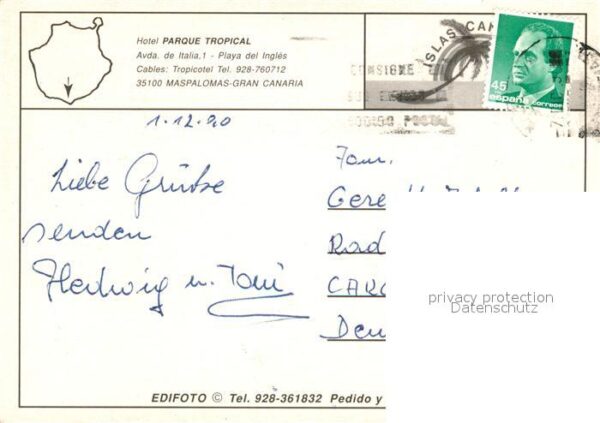 Hotel PARQUE TROPICAL
Avda. de Italia,1 - Playa del Inglés
Cables: Tropicotel Tel. 928-760712
35100 MASPALOMAS-GRAN CANARIA
ISLAS CAN
CONSIGNE
POSTAL
45
españa CORREOS
1.12.90
Liebe Grüsse
senden
Hedwig u. Toni
Fam.
Gere
Rad
CARO
Deu
privacy protection
Datenschutz
EDIFOTO © Tel. 928-361832 Pedido y